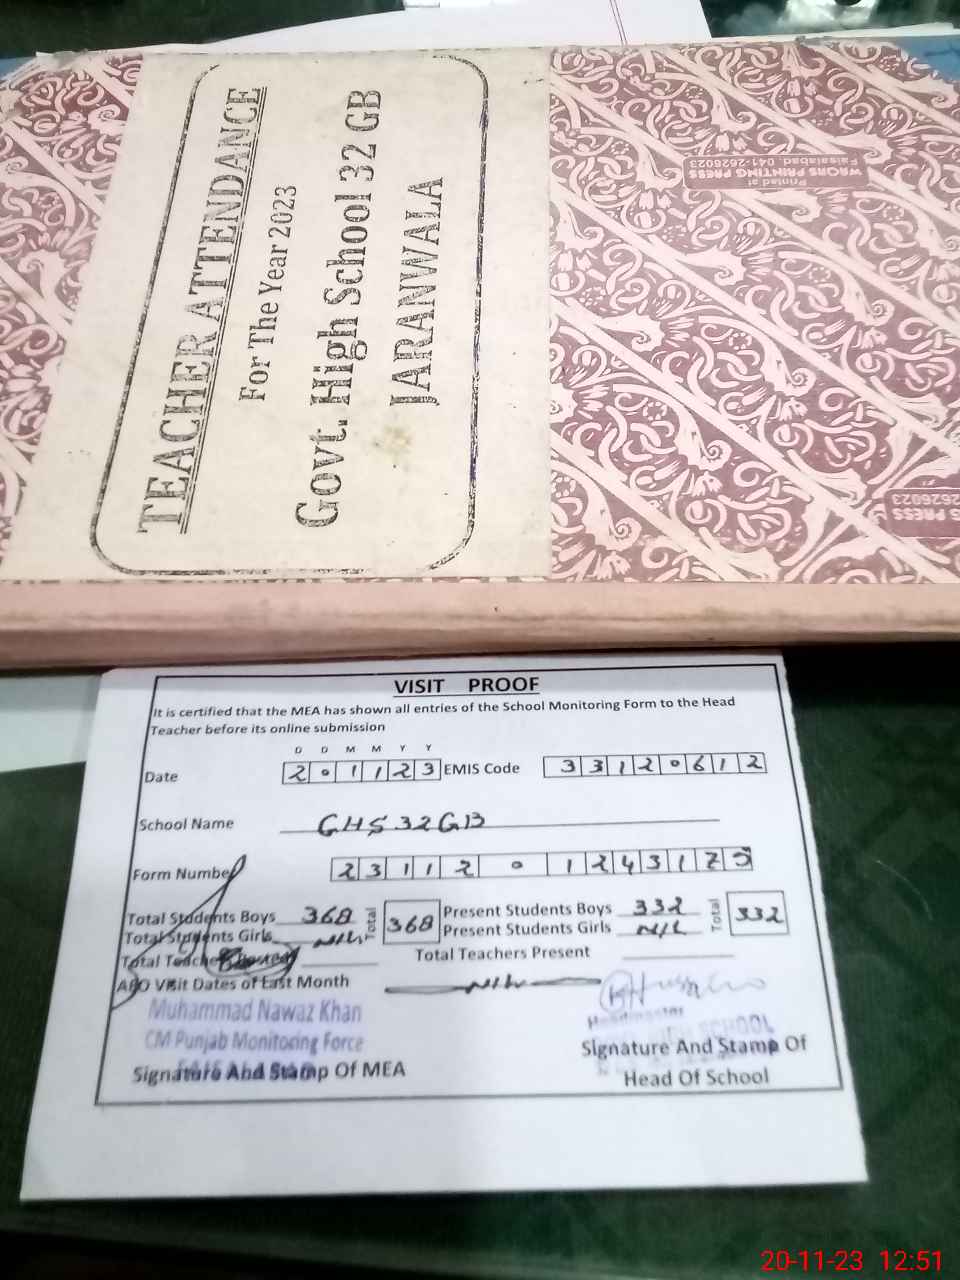 TEACHER ATTENDANCE
For The Year 2023
Govt. High School 32 GB
JARANWALA
Printed at
WAQAS PRINTING PRESS
Faisalabad. 041-2626023
G PRESS
2626023
VISIT PROOF
It is certified that the MEA has shown all entries of the School Monitoring Form to the Head
Teacher before its online submission
D D M M Y Y
Date 2 0 1 1 2 3 EMIS Code 3 3 1 2 0 6 1 2
School Name GHS 32 GB
Form Number 2 3 1 1 2 0 1 2 4 3 1 7 5
Total Students Boys 368 Total 368 Present Students Boys 332 Total 332
Total Students Girls Nil Present Students Girls Nil
Total Teachers Total Teachers Present
AEO Visit Dates of Last Month Nil
Muhammad Nawaz Khan
CM Punjab Monitoring Force
Headmaster
SCHOOL
Signature And Stamp Of MEA
Signature And Stamp Of
Head Of School
20-11-23 12:51